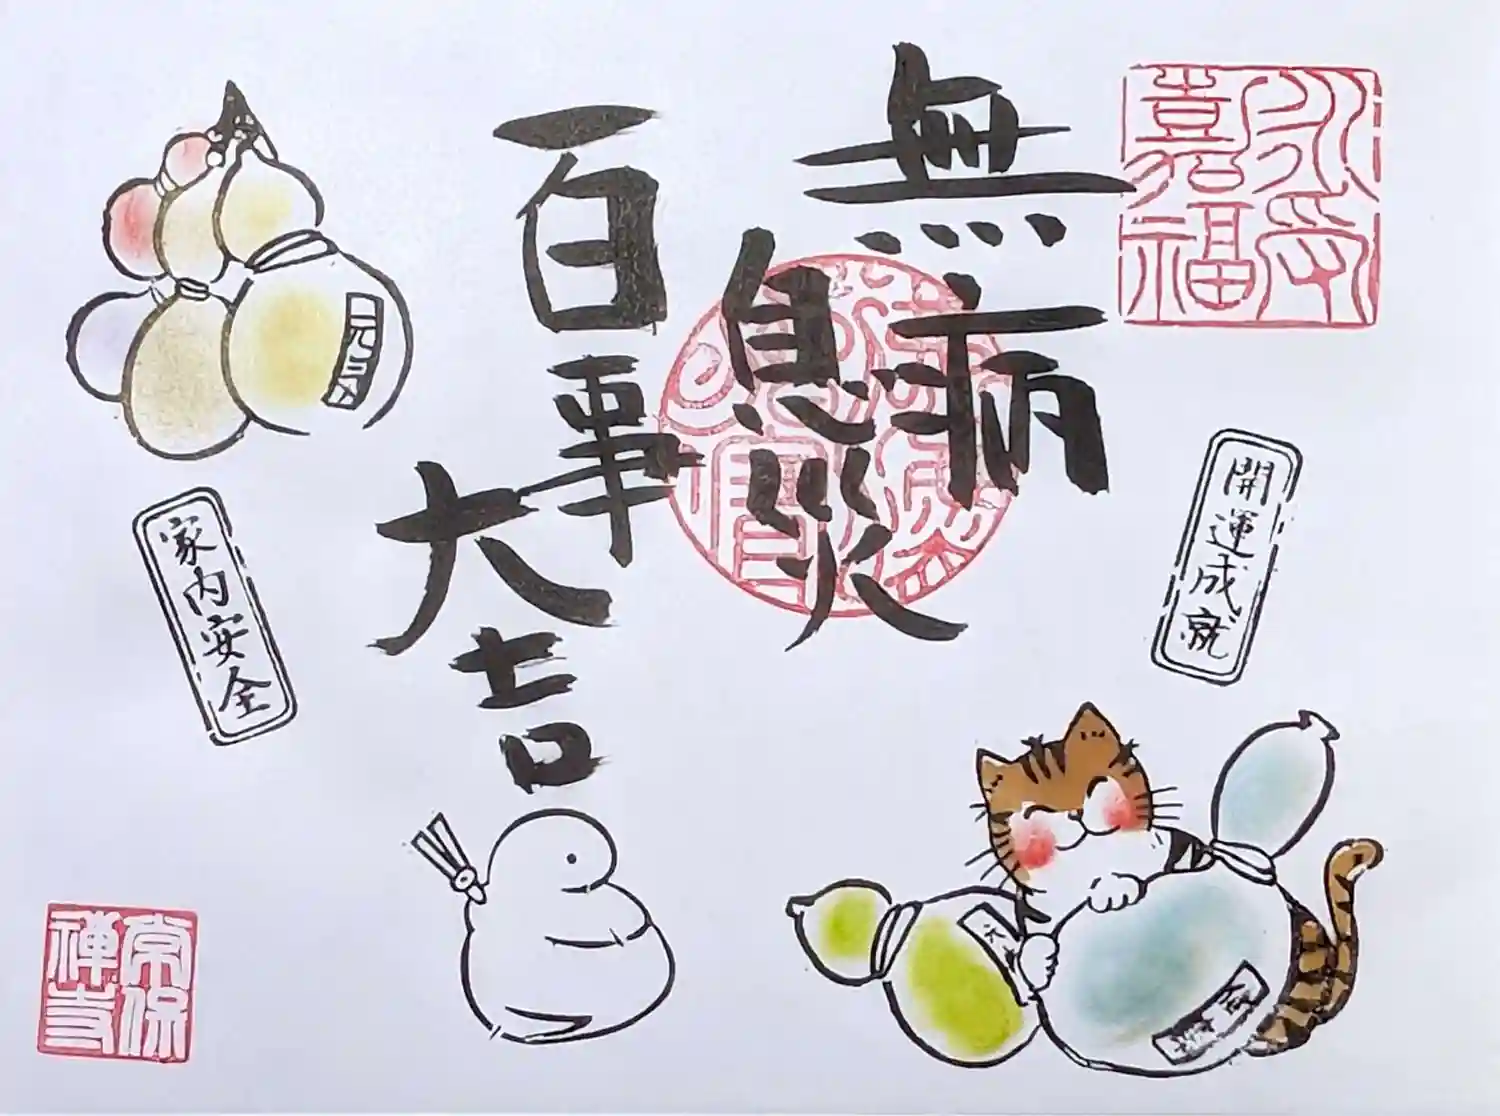 永受
嘉福
無病
息災
百事
大吉
開運成就
家内安全
常保
禅寺